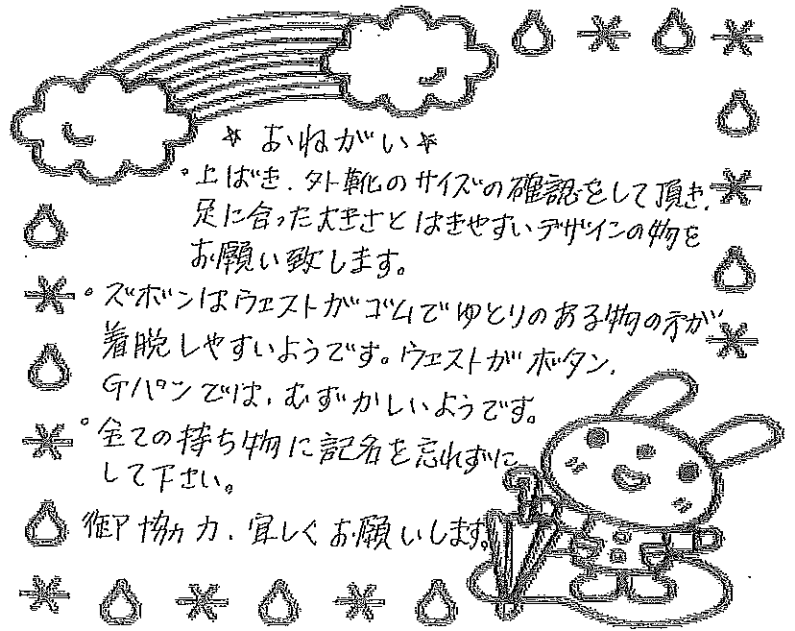 * おねがい *
・上ばき、外靴のサイズの確認をして頂き、
足に合った大きさとはきやすいデザインの物を
お願い致します。
・ズボンはウエストがゴムでゆとりのある物の方が
着脱しやすいようです。ウエストがボタン、
Gパンでは、むずかしいようです。
・全ての持ち物に記名を忘れずに
して下さい。
御協力、宜しくお願いします。